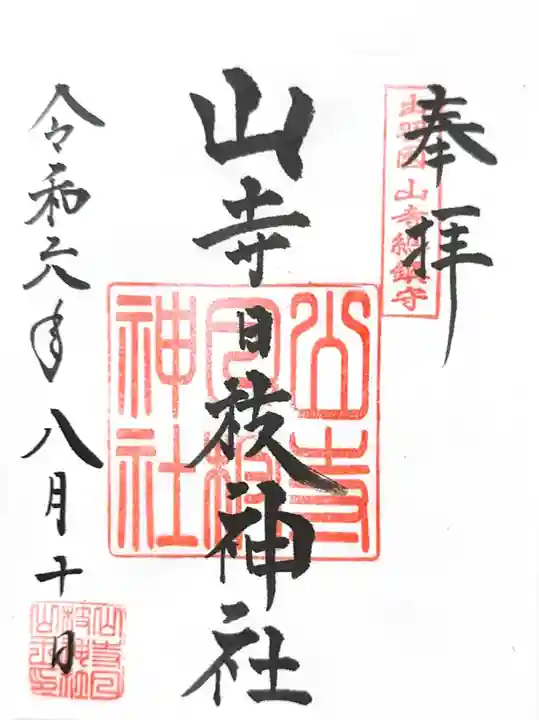 奉拝
出羽国山寺総鎮守
山寺日枝神社
山寺
日枝
神社
令和六年八月十日